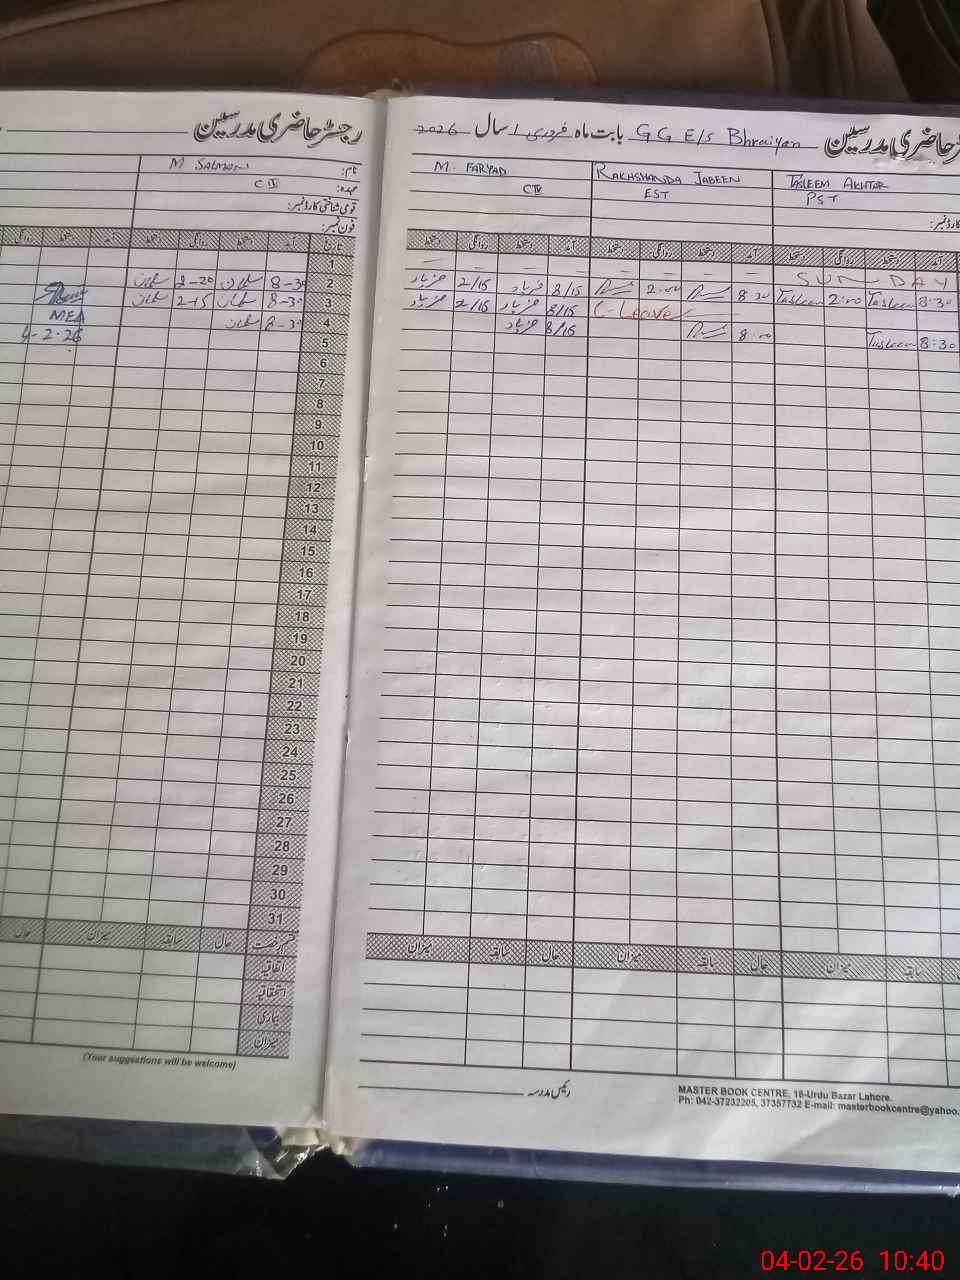 رجسٹر حاضری مدرسین
M SALMAN
نام:
CIV
عہدہ:
قومی شناختی کارڈ نمبر:
فون نمبر:
روانگی دستخط آمد دستخط روانگی دستخط آمد تاریخ
1
سلمان 2-20 سلمان 8-30 2
سلمان 2-15 سلمان 8-30 3
MEA سلمان 8-30 4
4-2-26 5
6
7
8
9
10
11
12
13
14
15
16
17
18
19
20
21
22
23
24
25
26
27
28
29
30
31
حال میزان سابقہ حال قسم رخصت
اتفاقیہ
استحقاقیہ
بیماری
میزان
(Your suggestions will be welcome)
رجسٹر حاضری مدرسین G G E/S Bhraiyan بابت ماہ فروری سال 2026
M. FARYAD RAKHSHANDA JABEEN TASLEEM AKHTAR
CIV EST PST
کارڈ نمبر:
دستخط روانگی دستخط آمد دستخط روانگی دستخط آمد دستخط روانگی دستخط آمد
SUN-DAY
فریاد 2/15 فریاد 8/15 2:00 8:30 Tasleem 2:00 Tasleem 8:30
فریاد 2/15 فریاد 8/15 C-Leave
فریاد 8/15 8:00 Tasleem 8:30
میزان سابقہ حال میزان سابقہ حال میزان سابقہ
رئیس مدرسہ
MASTER BOOK CENTRE, 16-Urdu Bazar Lahore.
Ph: 042-37232205, 37357732 E-mail: masterbookcentre@yahoo.
04-02-26 10:40